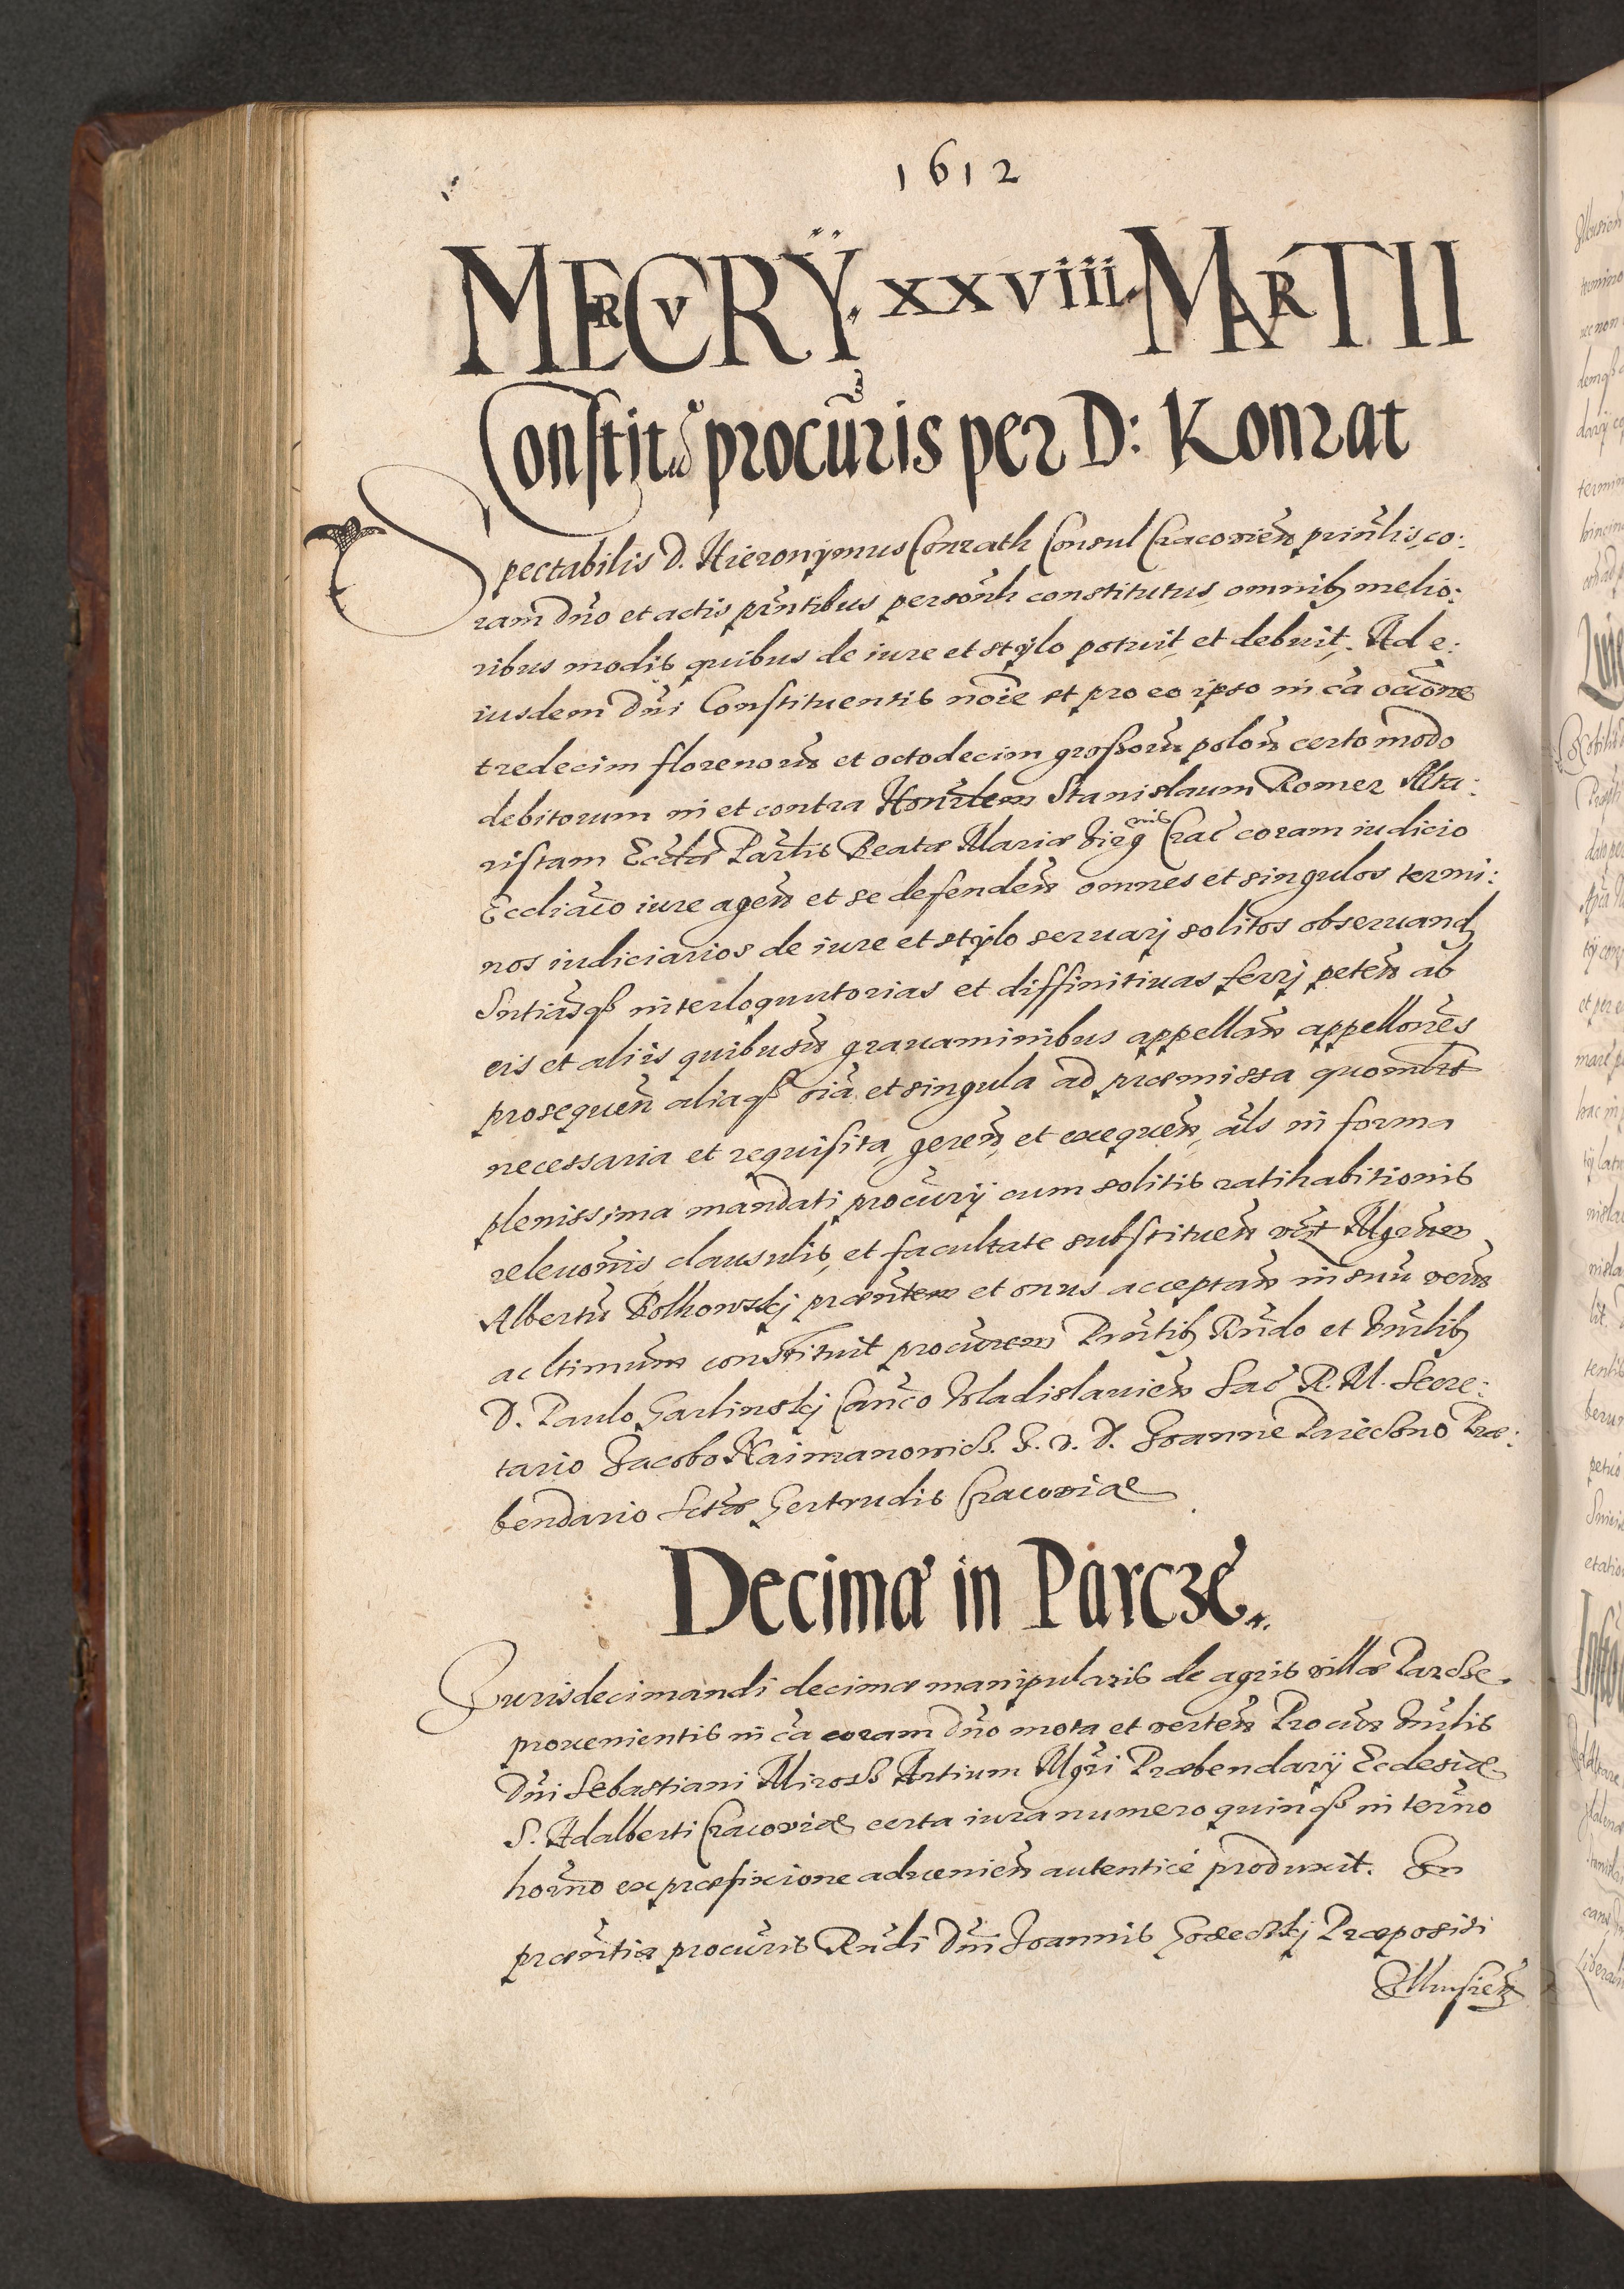 1612
MERCVRŸ. xxviii. MARTII
Constitũo procũris per D: Konrat
Spectabilis D. Hieronÿmus Conrath Consul Cracovien̄ prin̄lis, co:
ram Dn̄o et actis pn̄tibus personl̄r constitutus, omnibȝ melio:
ribus modis quibus de iure et stÿlo potuit, et debuit. Ad e:
iusdem Dn̄i Constituentis nōie et pro eo ipso in cā ocōne
tredecim florenorū et octodecim großorū polon̄ certo modo
debitorum in et contra Honr̄lem Stanislaum Romer Alta:
ristam Ecclæ Par̄lis Beatæ Mariæ Virg̃inis Crac̄ coram iudicio
Eccliāco iure agen̄ et se defenden̄ omnes et singulos termi:
nos iudiciarios de iure et stÿlo seruarj solitos obseruand
Sn̄tiasqȝ interloquutorias et diffinitiuas ferrj peten̄ ab
eis et aliis quibusūs grauaminibus appellan̄ appellōnes
prosequen̄ aliaqȝ oīa et singula ad præmissa quomlt
necessaria et requisita, geren̄, et exequen̄, āls in forma
plenissima mandati procūrij cum solitis ratihabitionis
releuōnis clausulis, et facultate substituen̄ vēt Mgrūm
Albertū Rolkowskj præn̄tem et onus acceptan̄ in suū verū
ac ltimum constituit procūrem Pn̄tibȝ Rn̄do et Vn̄rlibȝ
D. Paulo Garlinskj Canco Vladislauien̄ Sac̄ R. M. Secre:
tario Jacobo Naimanowicz. J. V. D. Joanne Pareczno Præ:
bendario Sctæ Gertrudis Cracoviæ
Decimæ in Parcze.
Juris decimandi decimæ manipularis de agris villæ Parcze
prouenientis in cā coram Dn̄o mota et verten̄ Procūr Vn̄rlis
Dn̄i Sebastiani Mirosz Artium Mgr̄i Præbendarÿ Ecclesiæ
S. Adalberti Cracoviæ certa iura numero quinqȝ in ter̄no
hor̄no ex præfixione aduenien̄ autenticè produxit. In
præn̄tia procūris Rn̄di Dn̄i Joannis Præpositi
Ilkusien̄